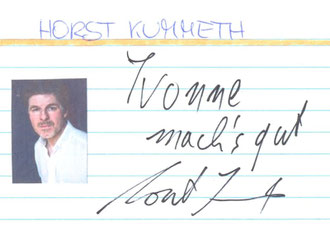 HORST KUMMETH
Yvonne
mach's gut
Horst